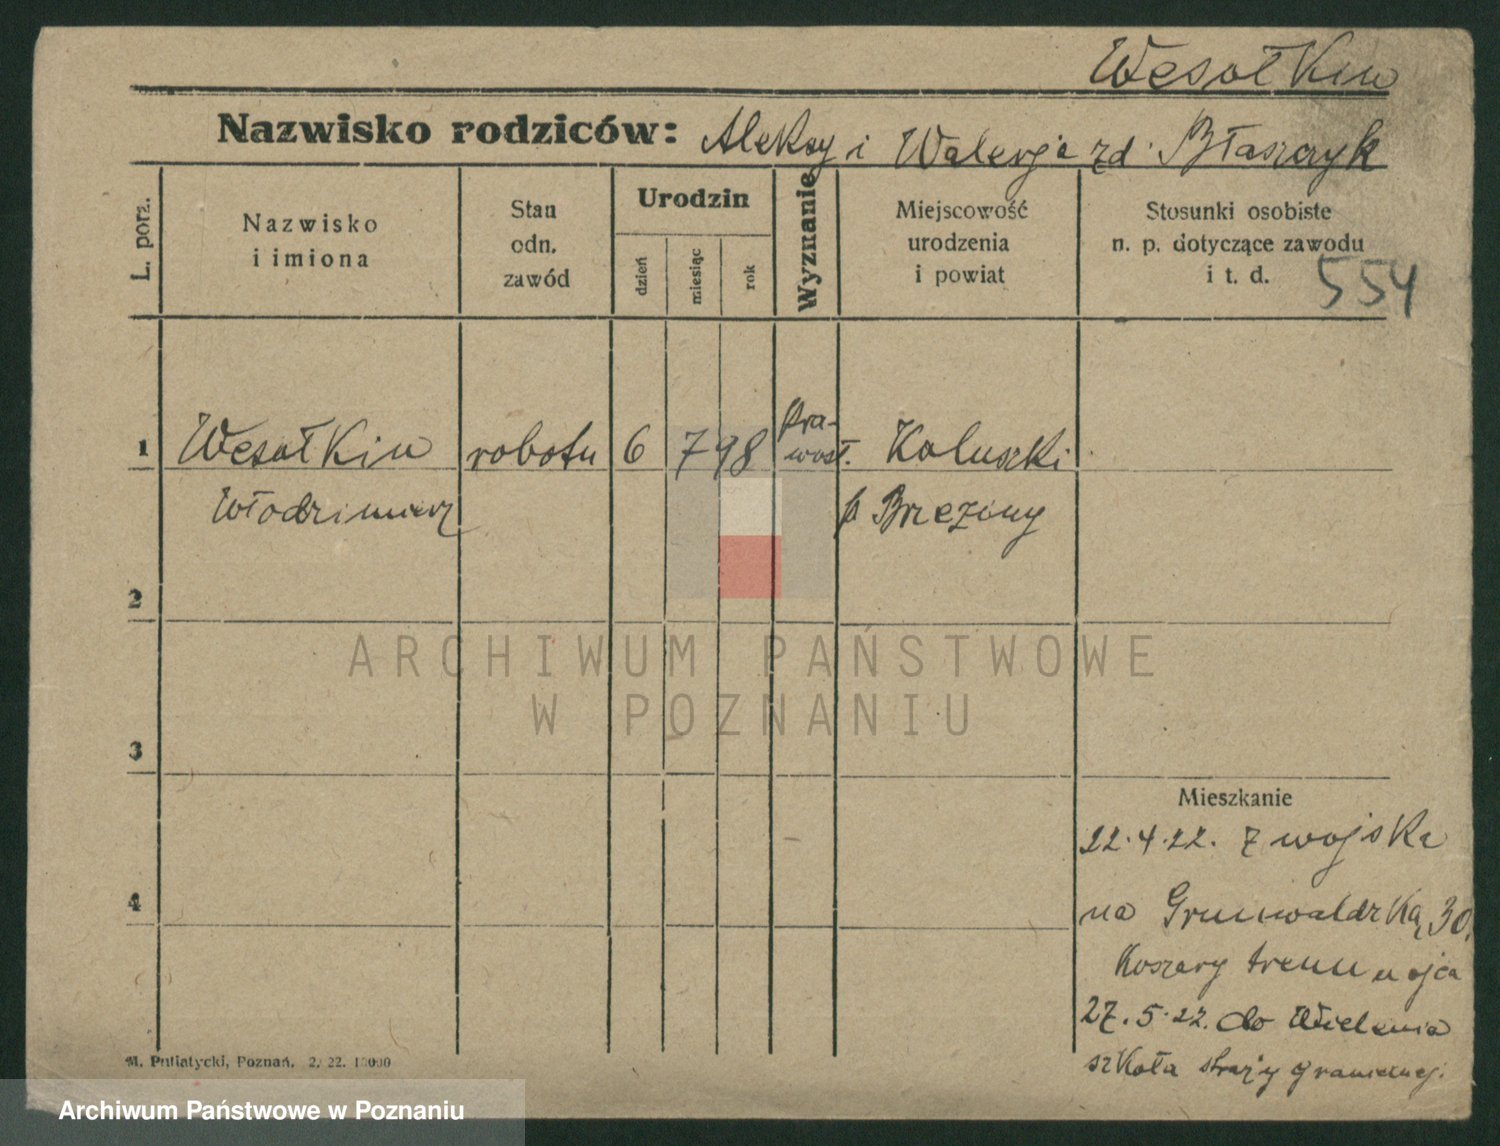 Wesołkin
Nazwisko rodziców: Aleksy i Walerja zd. Błaszczyk
L. porz.
Nazwisko
i imiona
Stan
odn.
zawód
Urodzin
dzień
miesiąc
rok
Wyznanie
Miejscowość
urodzenia
i powiat
Stosunki osobiste
n. p. dotyczące zawodu
i t. d.
554
1 Wesołkin robotn 6 7 98 Pra-
wosł. Koluszki
Włodzimierz p Brzeziny
2
3
4
Mieszkanie
22.4.22. z wojska
na Grunwaldzką 30.
Koszary trenu u ojca
27.5.22. do Wielenia
szkoła straży granicznej.
M. Putiatycki, Poznań. 2. 22. 10000
ARCHIWUM PAŃSTWOWE
W POZNANIU
Archiwum Państwowe w Poznaniu